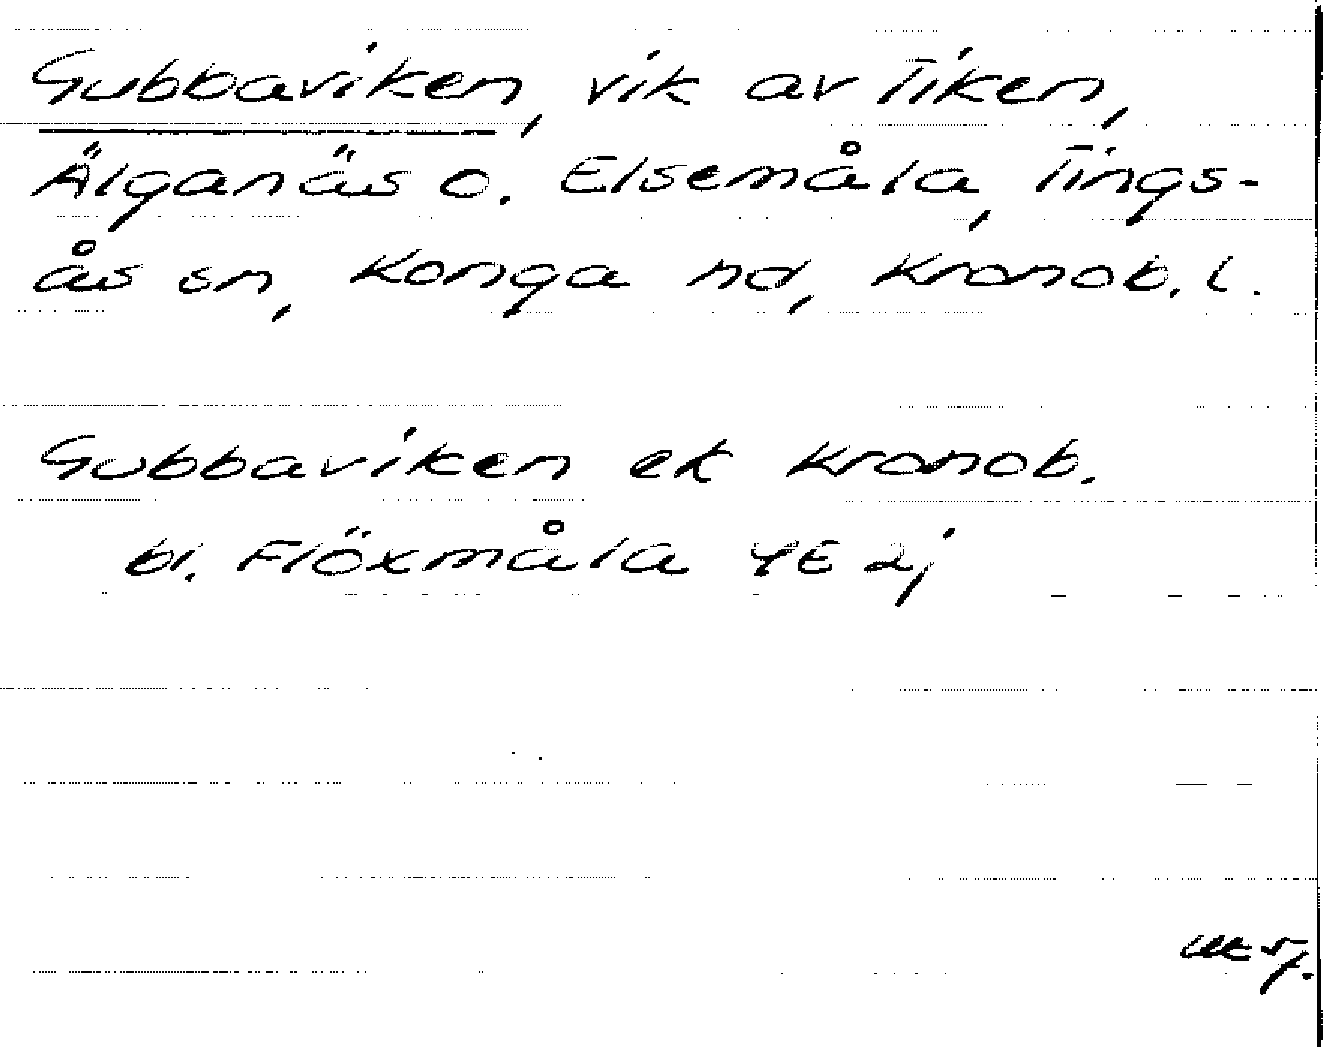 Gubbaviken, vik av Tiken,
Älganäs o. Elsemåla, Tings-
ås sn, Konga hd, Kronob. l.
Gubbaviken ek Kronob.
bl. Flöxmåla 4E 2j